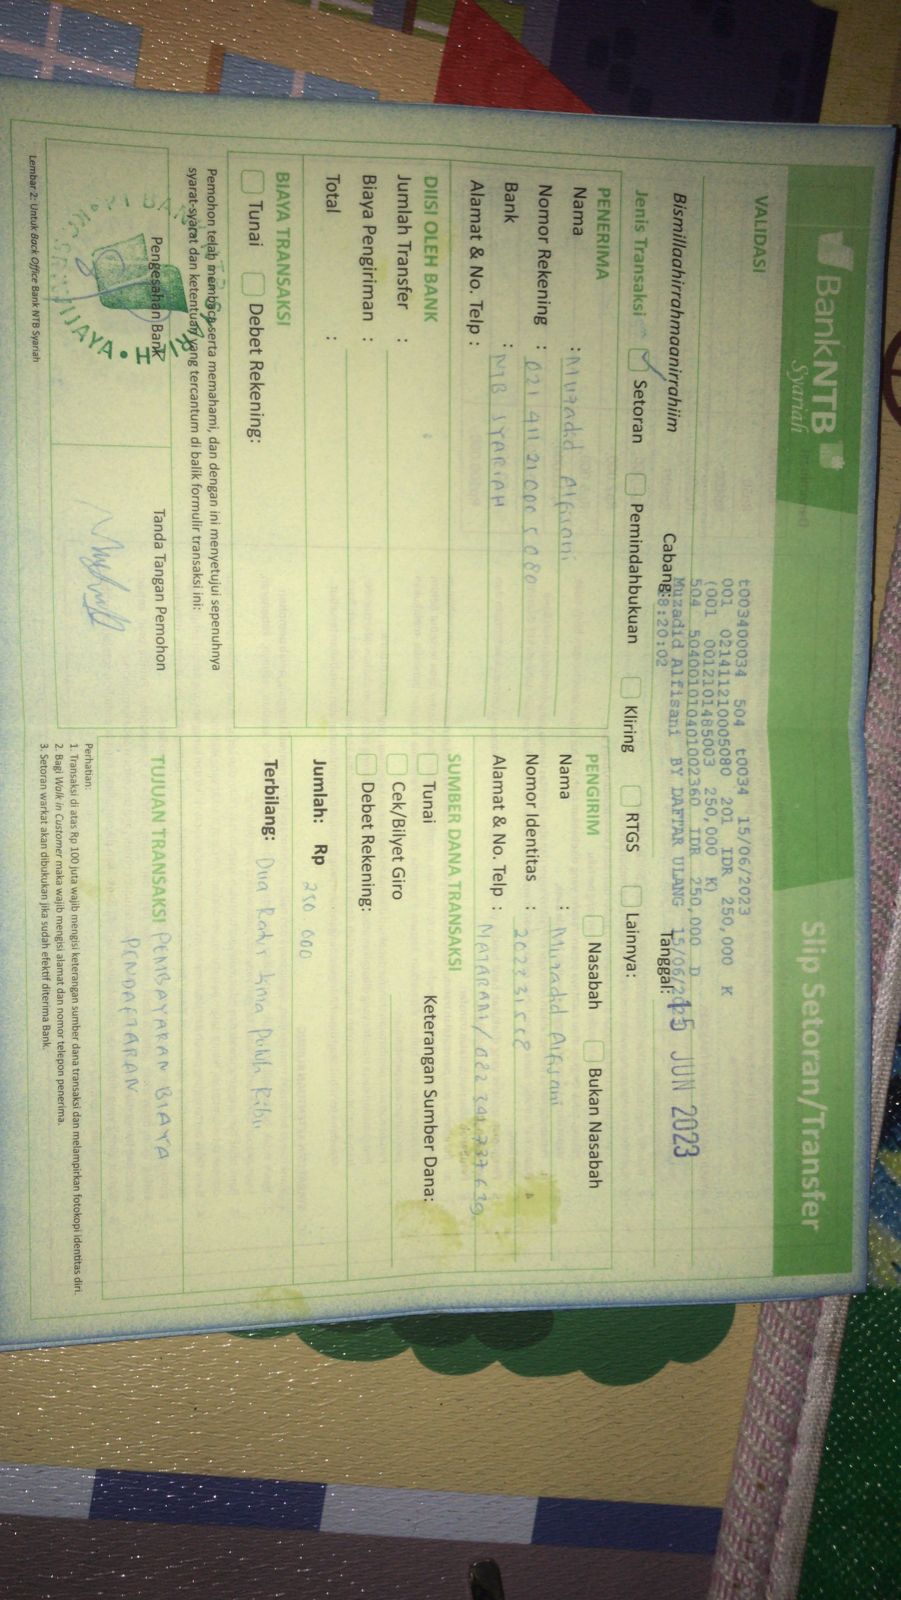 BankNTB
Syariah
Slip Setoran/Transfer
VALIDASI
t003400034 504 t0034 15/06/2023
001 0214112100005080 201 IDR 250,000 K
(001 0012101485003 250,000 K)
504 504001010401002360 IDR 250,000 D
Muzadid Alfisani BY DAFTAR ULANG 15/06/2023
08:20:02
Bismillaahirrahmaanirrahiim
Cabang:
Tanggal: 15 JUN 2023
Jenis Transaksi Setoran Pemindahbukuan Kliring RTGS Lainnya:
PENERIMA
Nama : Muzadid Alfisani
Nomor Rekening : 021 411 21 000 5 080
Bank : NTB SYARIAH
Alamat & No. Telp :
PENGIRIM Nasabah Bukan Nasabah
Nama : Muzadid Alfisani
Nomor Identitas :
Alamat & No. Telp : MATARAM/
DIISI OLEH BANK
Jumlah Transfer :
Biaya Pengiriman :
Total :
SUMBER DANA TRANSAKSI
Tunai Keterangan Sumber Dana:
Cek/Bilyet Giro
Debet Rekening:
BIAYA TRANSAKSI
Tunai Debet Rekening:
Jumlah: Rp 250 000
Terbilang: Dua Ratus Lima Puluh Ribu
Pemohon telah membaca serta memahami, dan dengan ini menyetujui sepenuhnya
syarat-syarat dan ketentuan yang tercantum di balik formulir transaksi ini:
Pengesahan Bank
Tanda Tangan Pemohon
TUJUAN TRANSAKSI PEMBAYARAN BIAYA
PENDAFTARAN
Perhatian:
1. Transaksi di atas Rp 100 juta wajib mengisi keterangan sumber dana transaksi dan melampirkan fotokopi identitas diri.
2. Bagi Walk in Customer maka wajib mengisi alamat dan nomor telepon penerima.
3. Setoran warkat akan dibukukan jika sudah efektif diterima Bank.
Lembar 2: Untuk Back Office Bank NTB Syariah